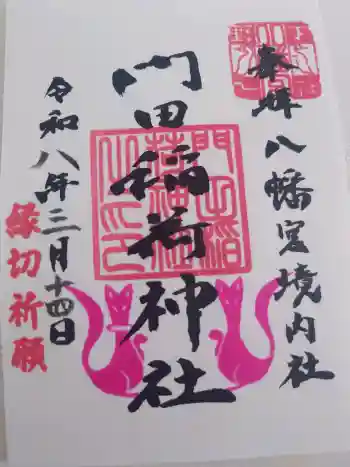 奉拝
八幡宮境内社
門田稲荷神社
令和八年三月十四日
縁切祈願